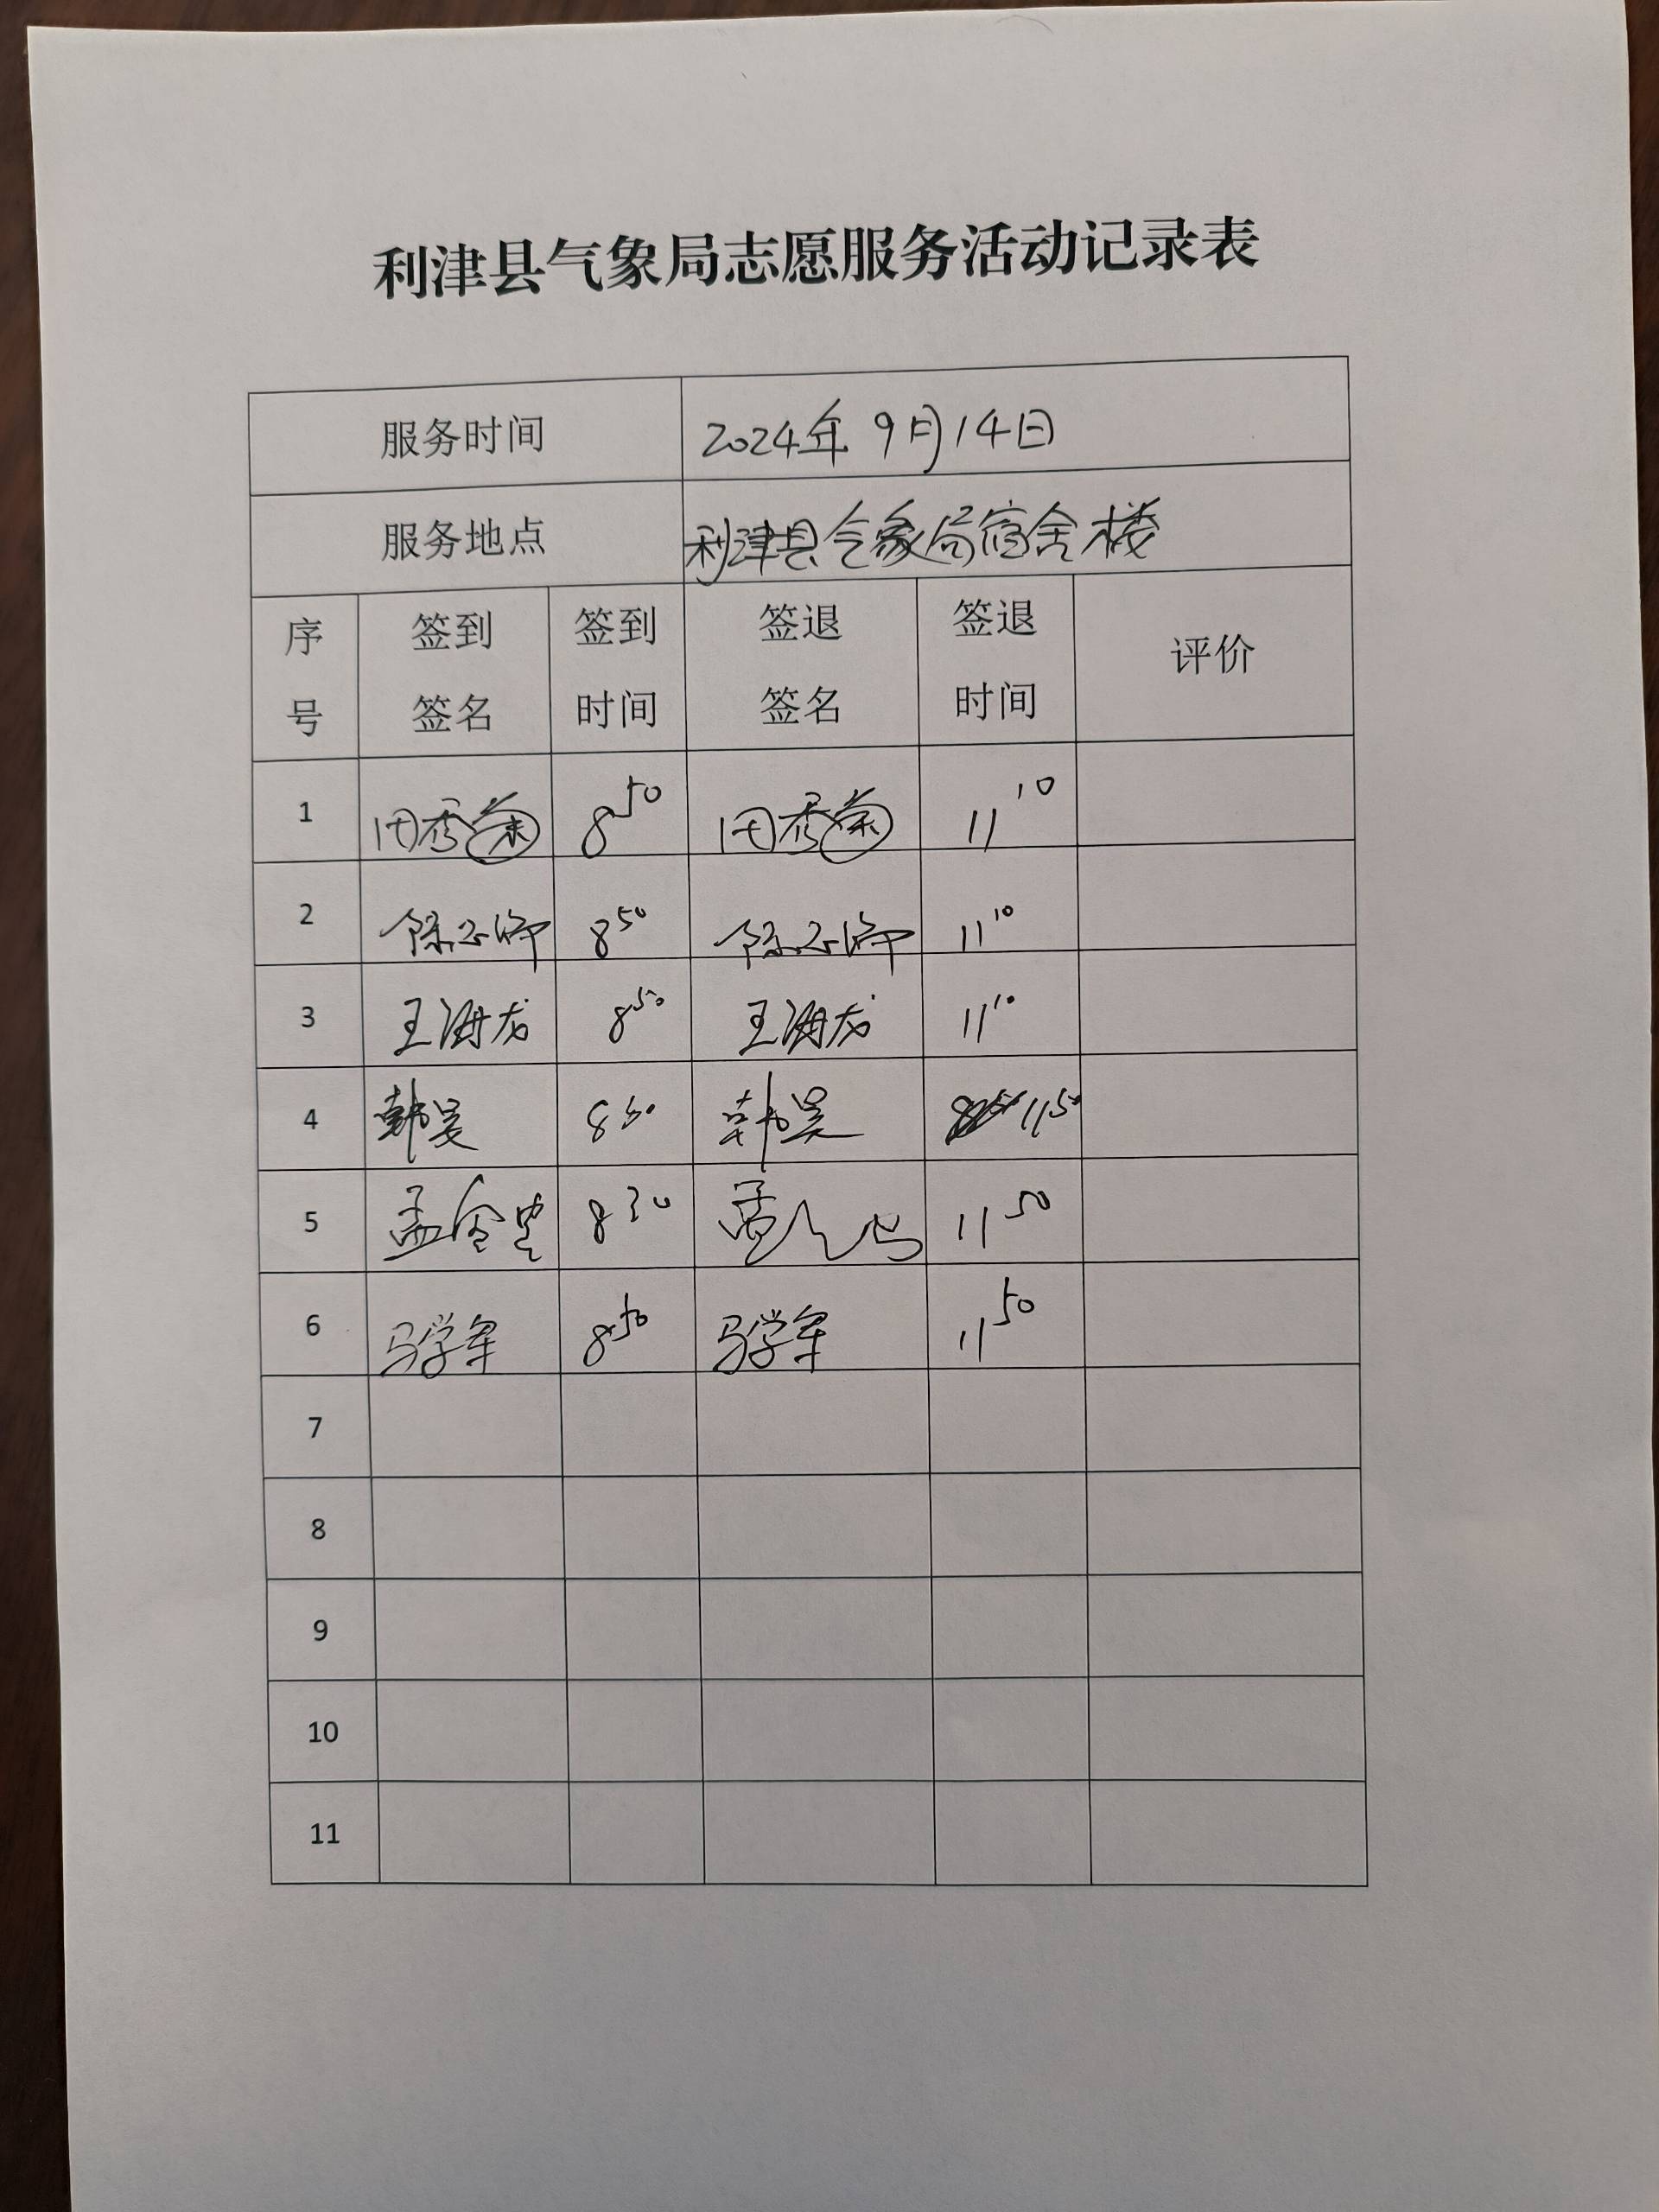 利津县气象局志愿服务活动记录表
服务时间 2024年9月14日
服务地点 利津县气象局宿舍楼
序号 签到签名 签到时间 签退签名 签退时间 评价
1 田秀菊 8 50 田秀菊 11 10
2 8 50 11 10
3 王海龙 8 50 王海龙 11 10
4 韩昊 韩昊 11 50
5 孟 8 30 孟 11 50
6 马学军 8 50 马学军 11 50
7
8
9
10
11